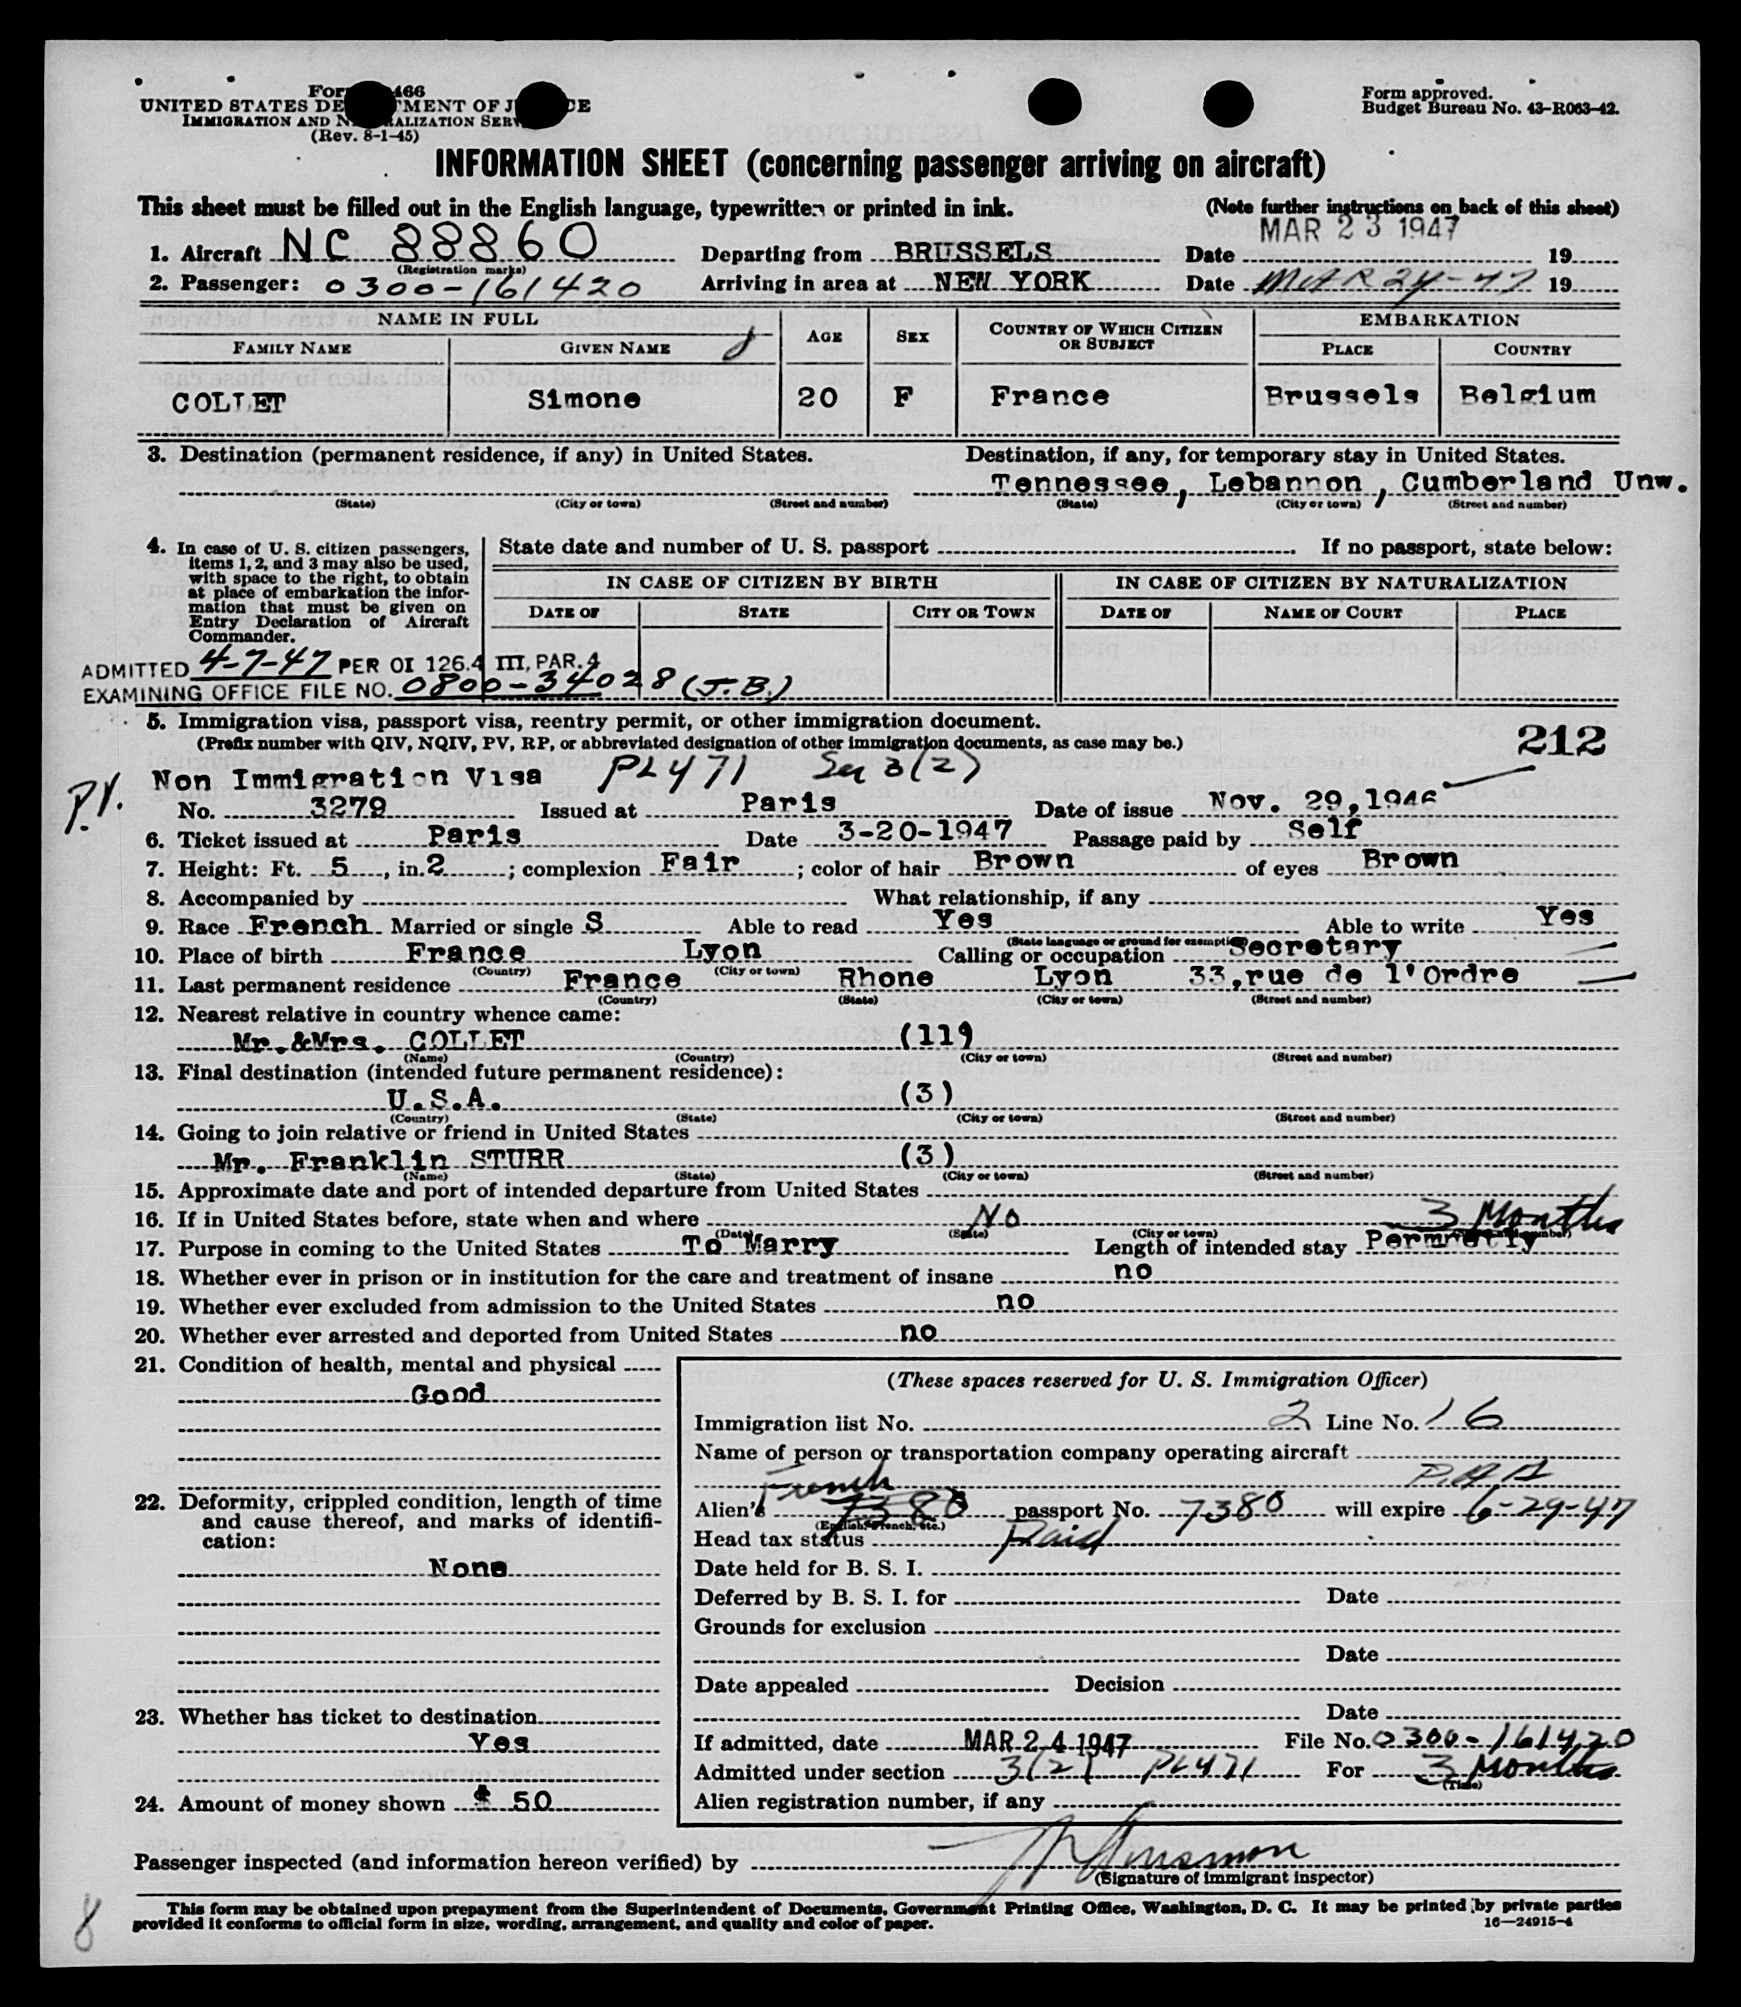 Form 466
UNITED STATES DE MENT OF J CE
IMMIGRATION AND N ALIZATION SERV
(Rev. 8-1-45)
Form approved.
Budget Bureau No. 43-R063-42.
INFORMATION SHEET (concerning passenger arriving on aircraft)
This sheet must be filled out in the English language, typewritten or printed in ink. (Note further instructions on back of this sheet)
1. Aircraft NC 88860 Departing from BRUSSELS Date MAR 23 1947 19
(Registration marks)
2. Passenger: 0300-161420 Arriving in area at NEW YORK Date MAR 24-47 19
NAME IN FULL AGE SEX COUNTRY OF WHICH CITIZEN OR SUBJECT EMBARKATION
FAMILY NAME GIVEN NAME PLACE COUNTRY
COLLET Simone 20 F France Brussels Belgium
3. Destination (permanent residence, if any) in United States. Destination, if any, for temporary stay in United States.
Tennessee, Lebannon, Cumberland Unw.
(State) (City or town) (Street and number) (State) (City or town) (Street and number)
4. In case of U. S. citizen passengers, items 1, 2, and 3 may also be used, with space to the right, to obtain at place of embarkation the information that must be given on Entry Declaration of Aircraft Commander.
State date and number of U. S. passport If no passport, state below:
IN CASE OF CITIZEN BY BIRTH IN CASE OF CITIZEN BY NATURALIZATION
DATE OF STATE CITY OR TOWN DATE OF NAME OF COURT PLACE
ADMITTED 4-7-47 PER OI 126.4 III, PAR. 4
EXAMINING OFFICE FILE NO. 0800-34028 (J.B.)
5. Immigration visa, passport visa, reentry permit, or other immigration document.
(Prefix number with QIV, NQIV, PV, RP, or abbreviated designation of other immigration documents, as case may be.)
212
P.V. Non Immigration Visa PL 471 Sec 3(2)
No. 3279 Issued at Paris Date of issue Nov. 29,1946
6. Ticket issued at Paris Date 3-20-1947 Passage paid by Self
7. Height: Ft. 5, in. 2; complexion Fair; color of hair Brown of eyes Brown
8. Accompanied by What relationship, if any
9. Race French Married or single S Able to read Yes Able to write Yes
(State language or ground for exemption)
10. Place of birth France Lyon Calling or occupation Secretary
(Country) (City or town)
11. Last permanent residence France Rhone Lyon 33,rue de l'Ordre
(Country) (State) (City or town) (Street and number)
12. Nearest relative in country whence came:
Mr.&Mrs. COLLET (11)
(Name) (Country) (City or town) (Street and number)
13. Final destination (intended future permanent residence):
U.S.A. (3)
(Country) (State) (City or town) (Street and number)
14. Going to join relative or friend in United States
Mr. Franklin STURR (3)
(Name) (State) (City or town) (Street and number)
15. Approximate date and port of intended departure from United States
16. If in United States before, state when and where No 3 Months
(Date) (State) (City or town) (Street and number)
17. Purpose in coming to the United States To Marry Length of intended stay Permnetly
18. Whether ever in prison or in institution for the care and treatment of insane no
19. Whether ever excluded from admission to the United States no
20. Whether ever arrested and deported from United States no
21. Condition of health, mental and physical
Good
22. Deformity, crippled condition, length of time and cause thereof, and marks of identification:
None
23. Whether has ticket to destination
Yes
24. Amount of money shown $ 50
(These spaces reserved for U. S. Immigration Officer)
Immigration list No. 2 Line No. 16
Name of person or transportation company operating aircraft
P.A.A
Alien's French 7380 passport No. 7380 will expire 6-29-47
(English, French, etc.)
Head tax status Paid
Date held for B. S. I.
Deferred by B. S. I. for Date
Grounds for exclusion
Date
Date appealed Decision
Date
If admitted, date MAR 24 1947 File No. 0300-161420
Admitted under section 3(2) PL471 For 3 Months
(Time)
Alien registration number, if any
Passenger inspected (and information hereon verified) by
(Signature of immigrant inspector)
This form may be obtained upon prepayment from the Superintendent of Documents, Government Printing Office, Washington, D. C. It may be printed by private parties
provided it conforms to official form in size, wording, arrangement, and quality and color of paper.
16—24915-4
8